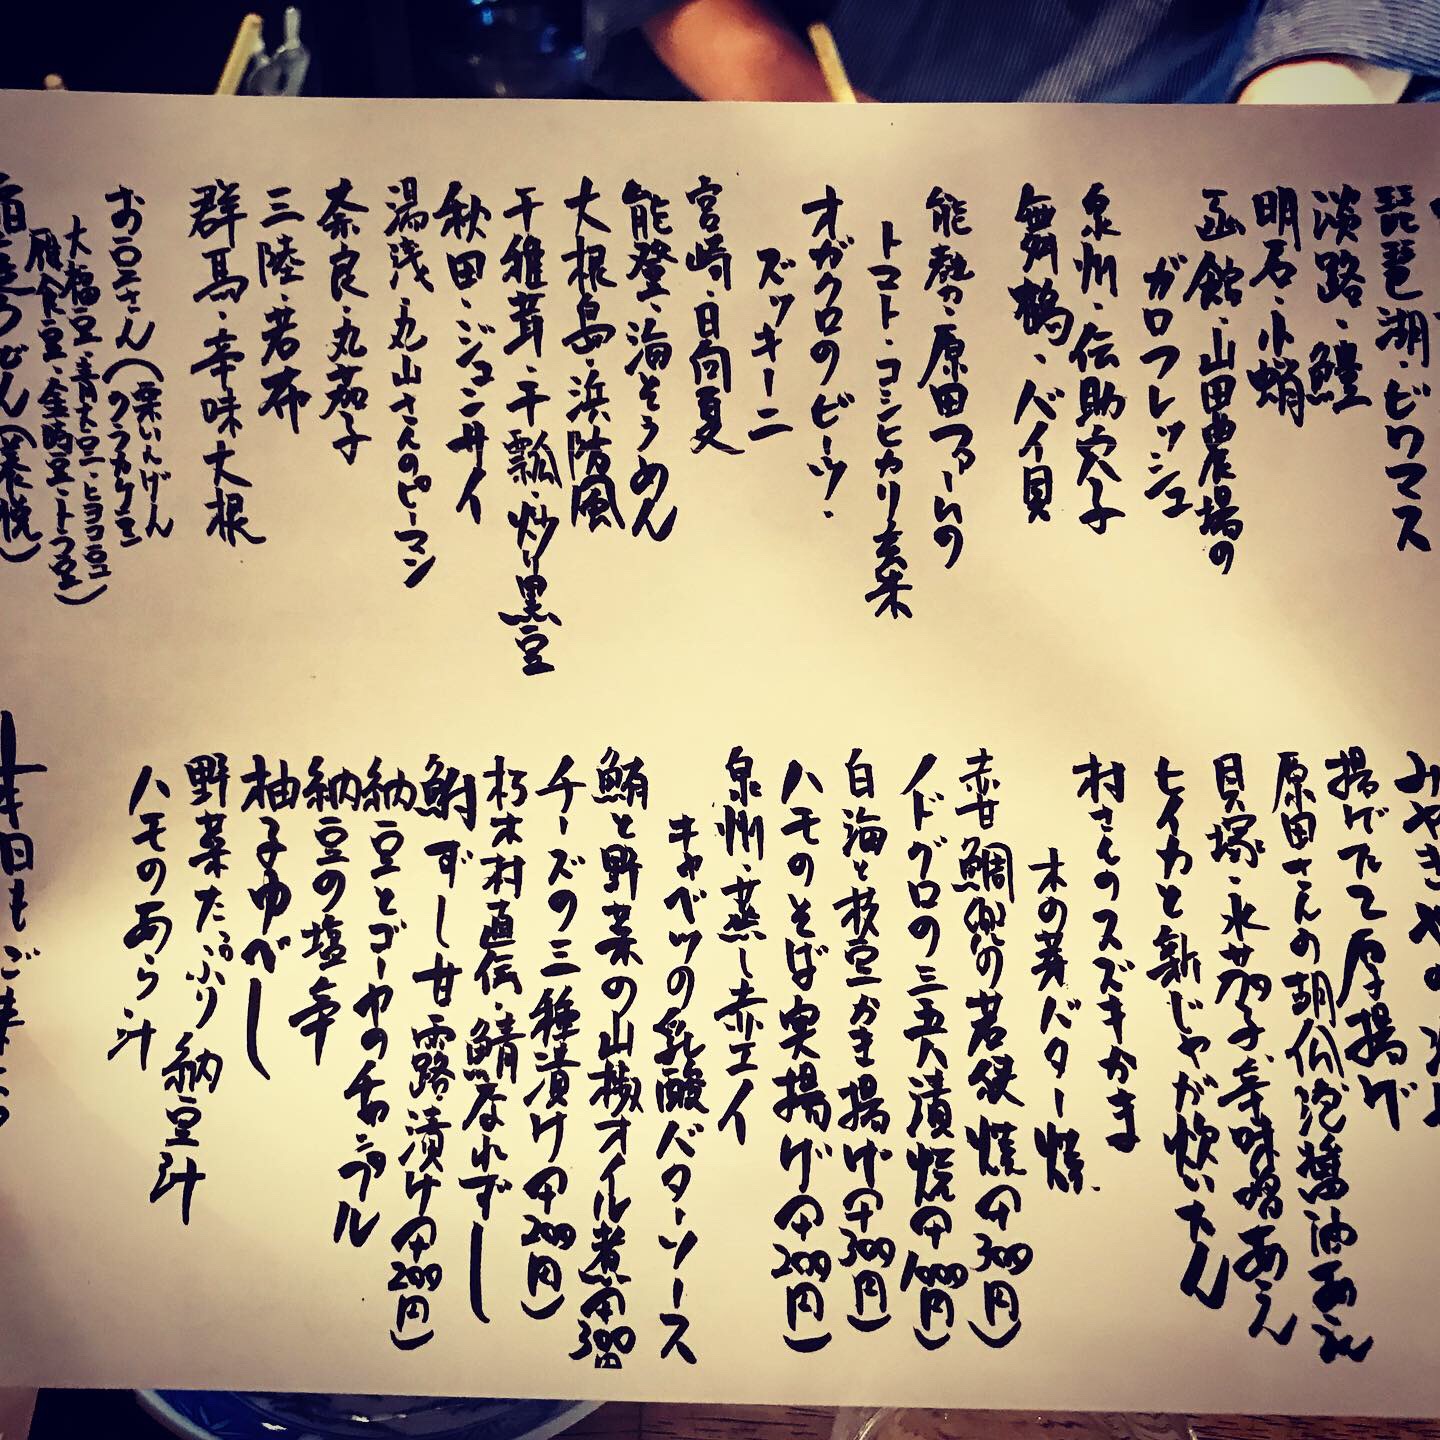 琵琶湖・ビワマス
淡路・鱧
明石・小蛸
函館・山田農場の
ガロフレッシュ
泉州・伝助穴子
舞鶴・バイ貝
能勢・原田ファームの
トマト・コシヒカリ玄米
オガクロのビーツ・
ズッキーニ
宮崎・日向夏
能登・海そうめん
大根島・浜防風
干椎茸・干瓢・炒り黒豆
秋田・ジュンサイ
湯浅・丸山さんのピーマン
奈良・丸茄子
三陸・若布
群馬・辛味大根
お豆さん(栗いんげん
大福豆・青大豆・ヒヨコ豆
雁食豆・金時豆・トラ豆)
揚げたて厚揚げ
原田さんの胡瓜泡醬油あえ
貝塚・水茄子、辛味噌あえ
ヒイカと新じゃが炊いたん
村さんのスズキかま
木の芽バター焼
赤甘鯛の若狭焼(+300円)
ノドグロの三五八漬焼(+1000円)
白海と枝豆かき揚げ(+300円)
ハモのそば実揚げ(+200円)
泉州・蒸し赤エイ
キャベツの乳酸バターソース
鮪と野菜の山椒オイル煮(+300円)
チーズの三種漬け(+200円)
朽木村直伝・鯖なれずし
鮒ずし甘露漬け(+200円)
納豆とゴーヤのちゃんプル
納豆の塩辛
柚子ゆべし
野菜たっぷり納豆汁
ハモのあら汁
本日もご